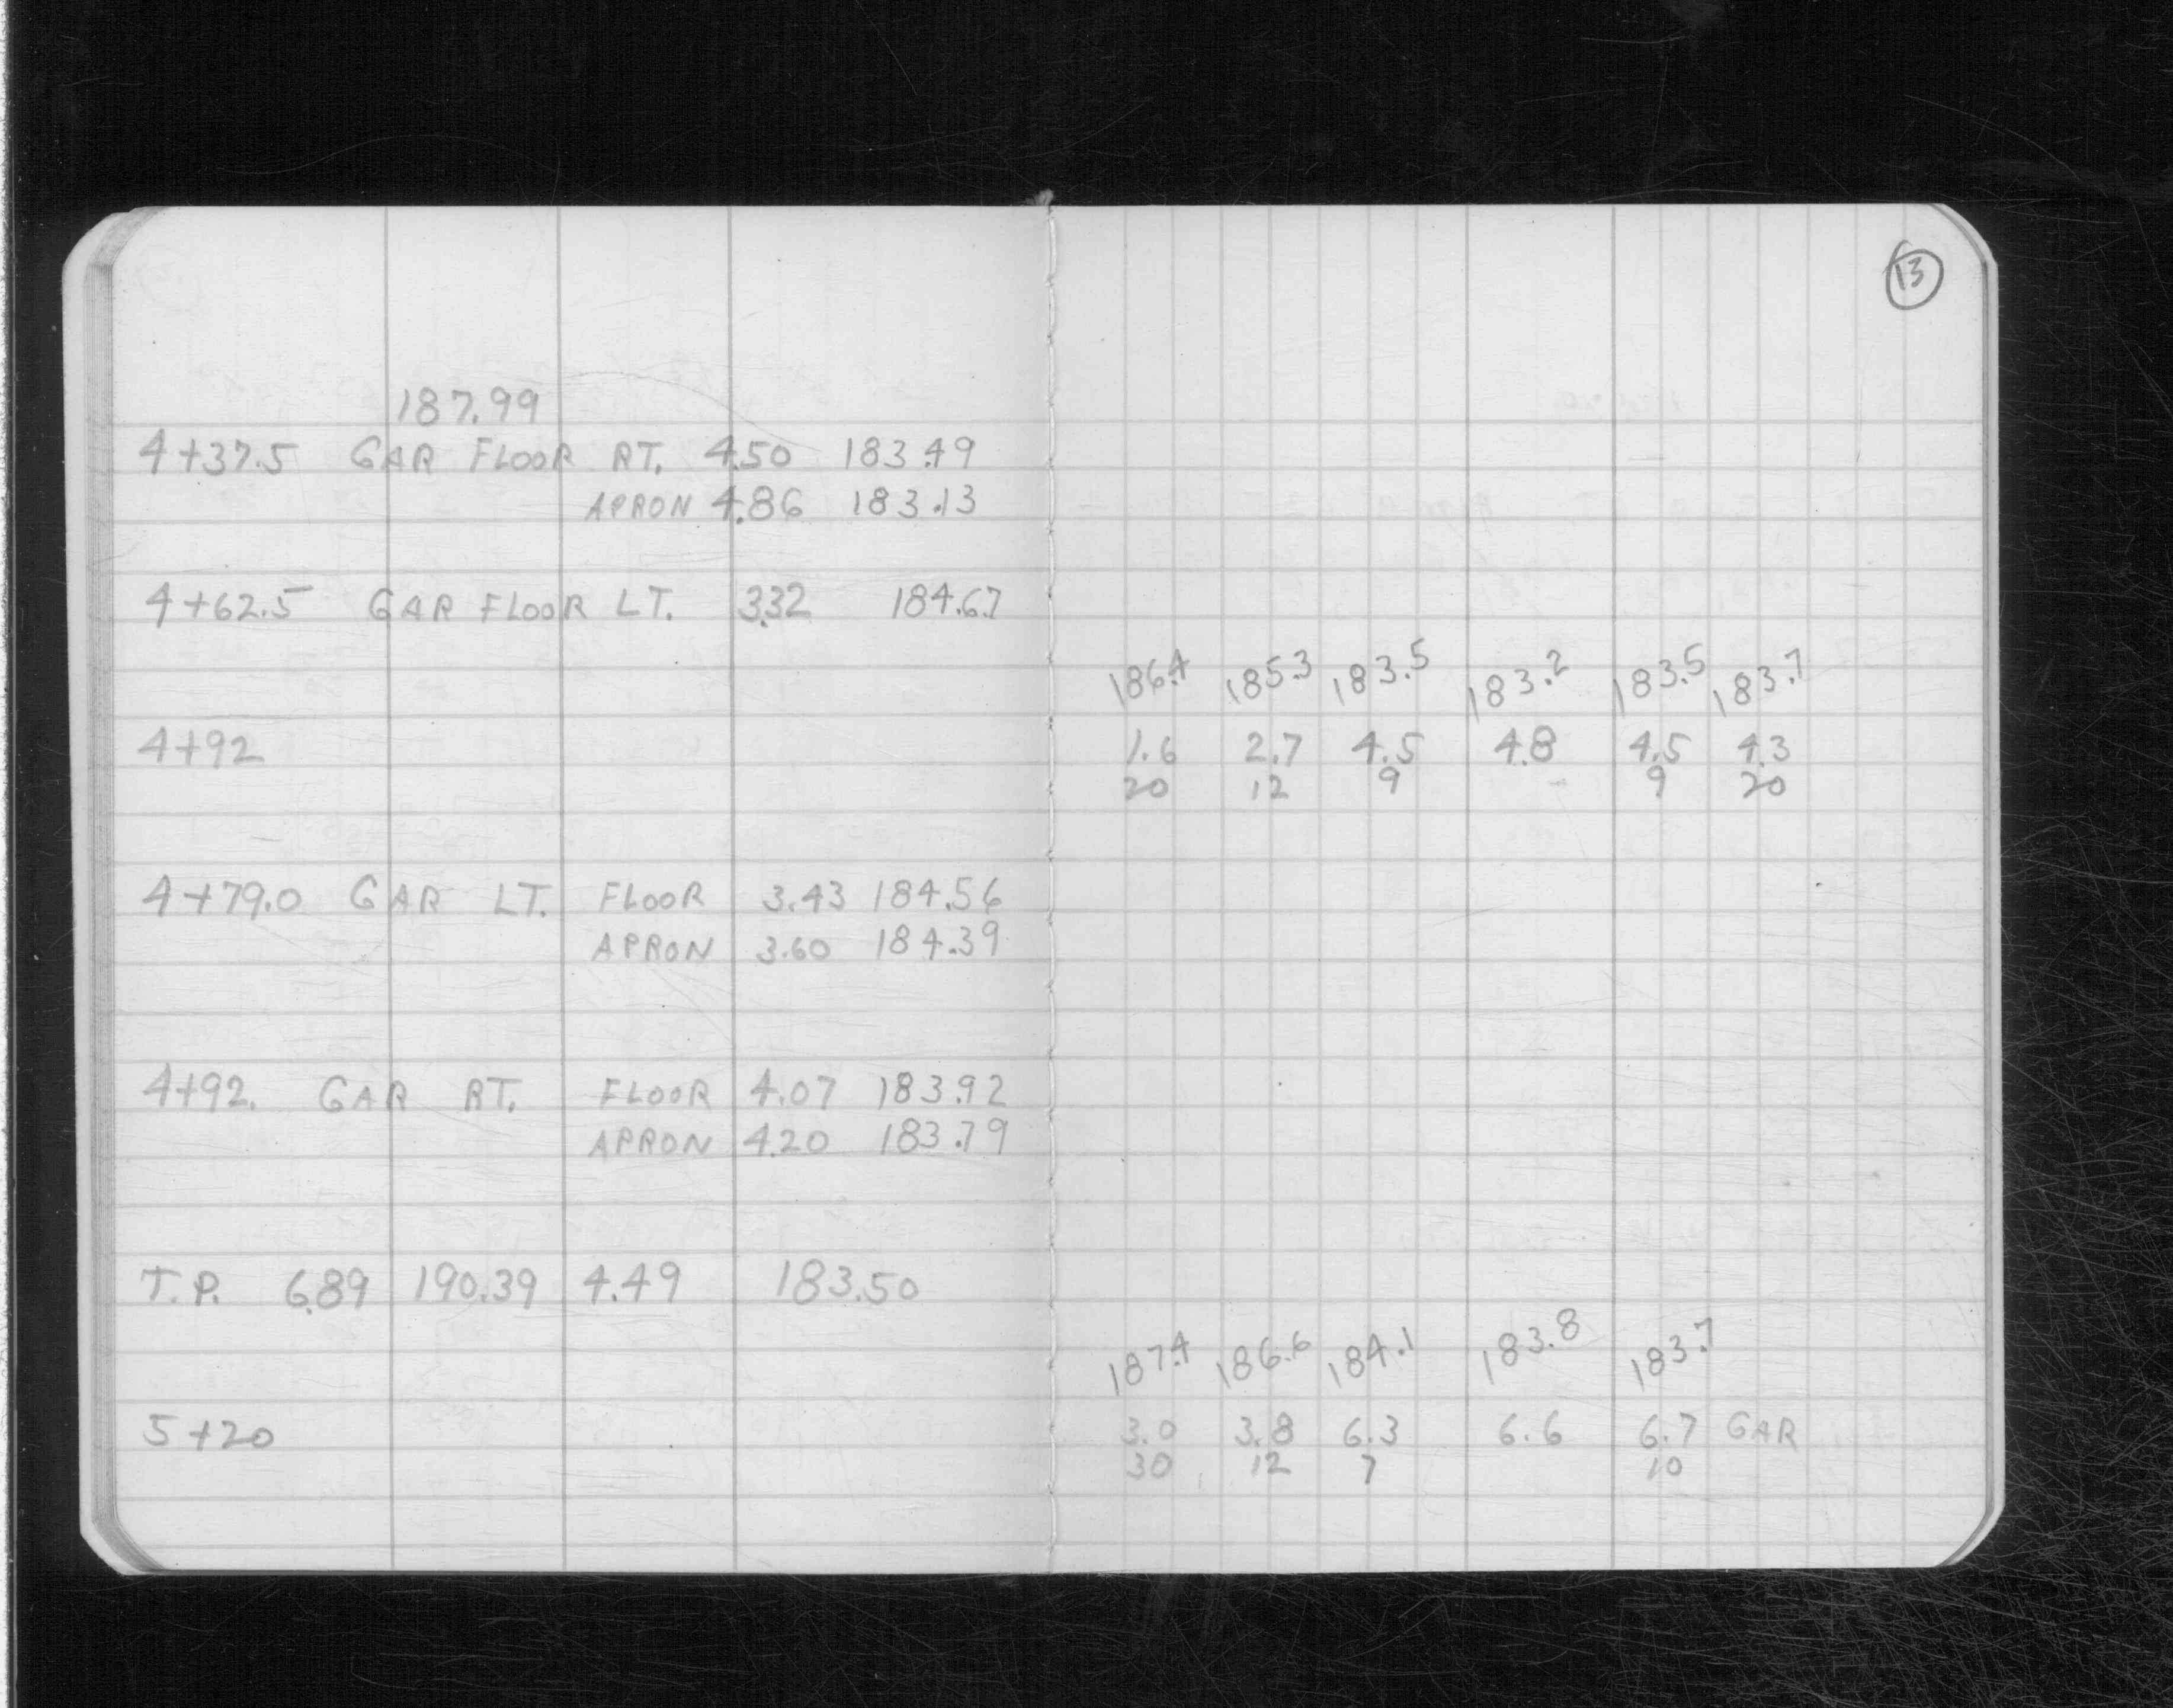 13
187.99
4+37.5 GAR FLOOR RT. 4.50 183.49
APRON 4.86 183.13
4+62.5 GAR FLOOR LT. 3.32 184.67
186.4 185.3 183.5 183.2 183.5 183.7
4+92 1.6 2.7 4.5 4.8 4.5 4.3
20 12 9 - 9 20
4+79.0 GAR LT. FLOOR 3.43 184.56
APRON 3.60 184.39
4+92. GAR RT. FLOOR 4.07 183.92
APRON 4.20 183.79
T.P. 6.89 190.39 4.49 183.50
187.4 186.6 184.1 183.8 183.7
5+20 3.0 3.8 6.3 6.6 6.7 GAR
30 12 7 10